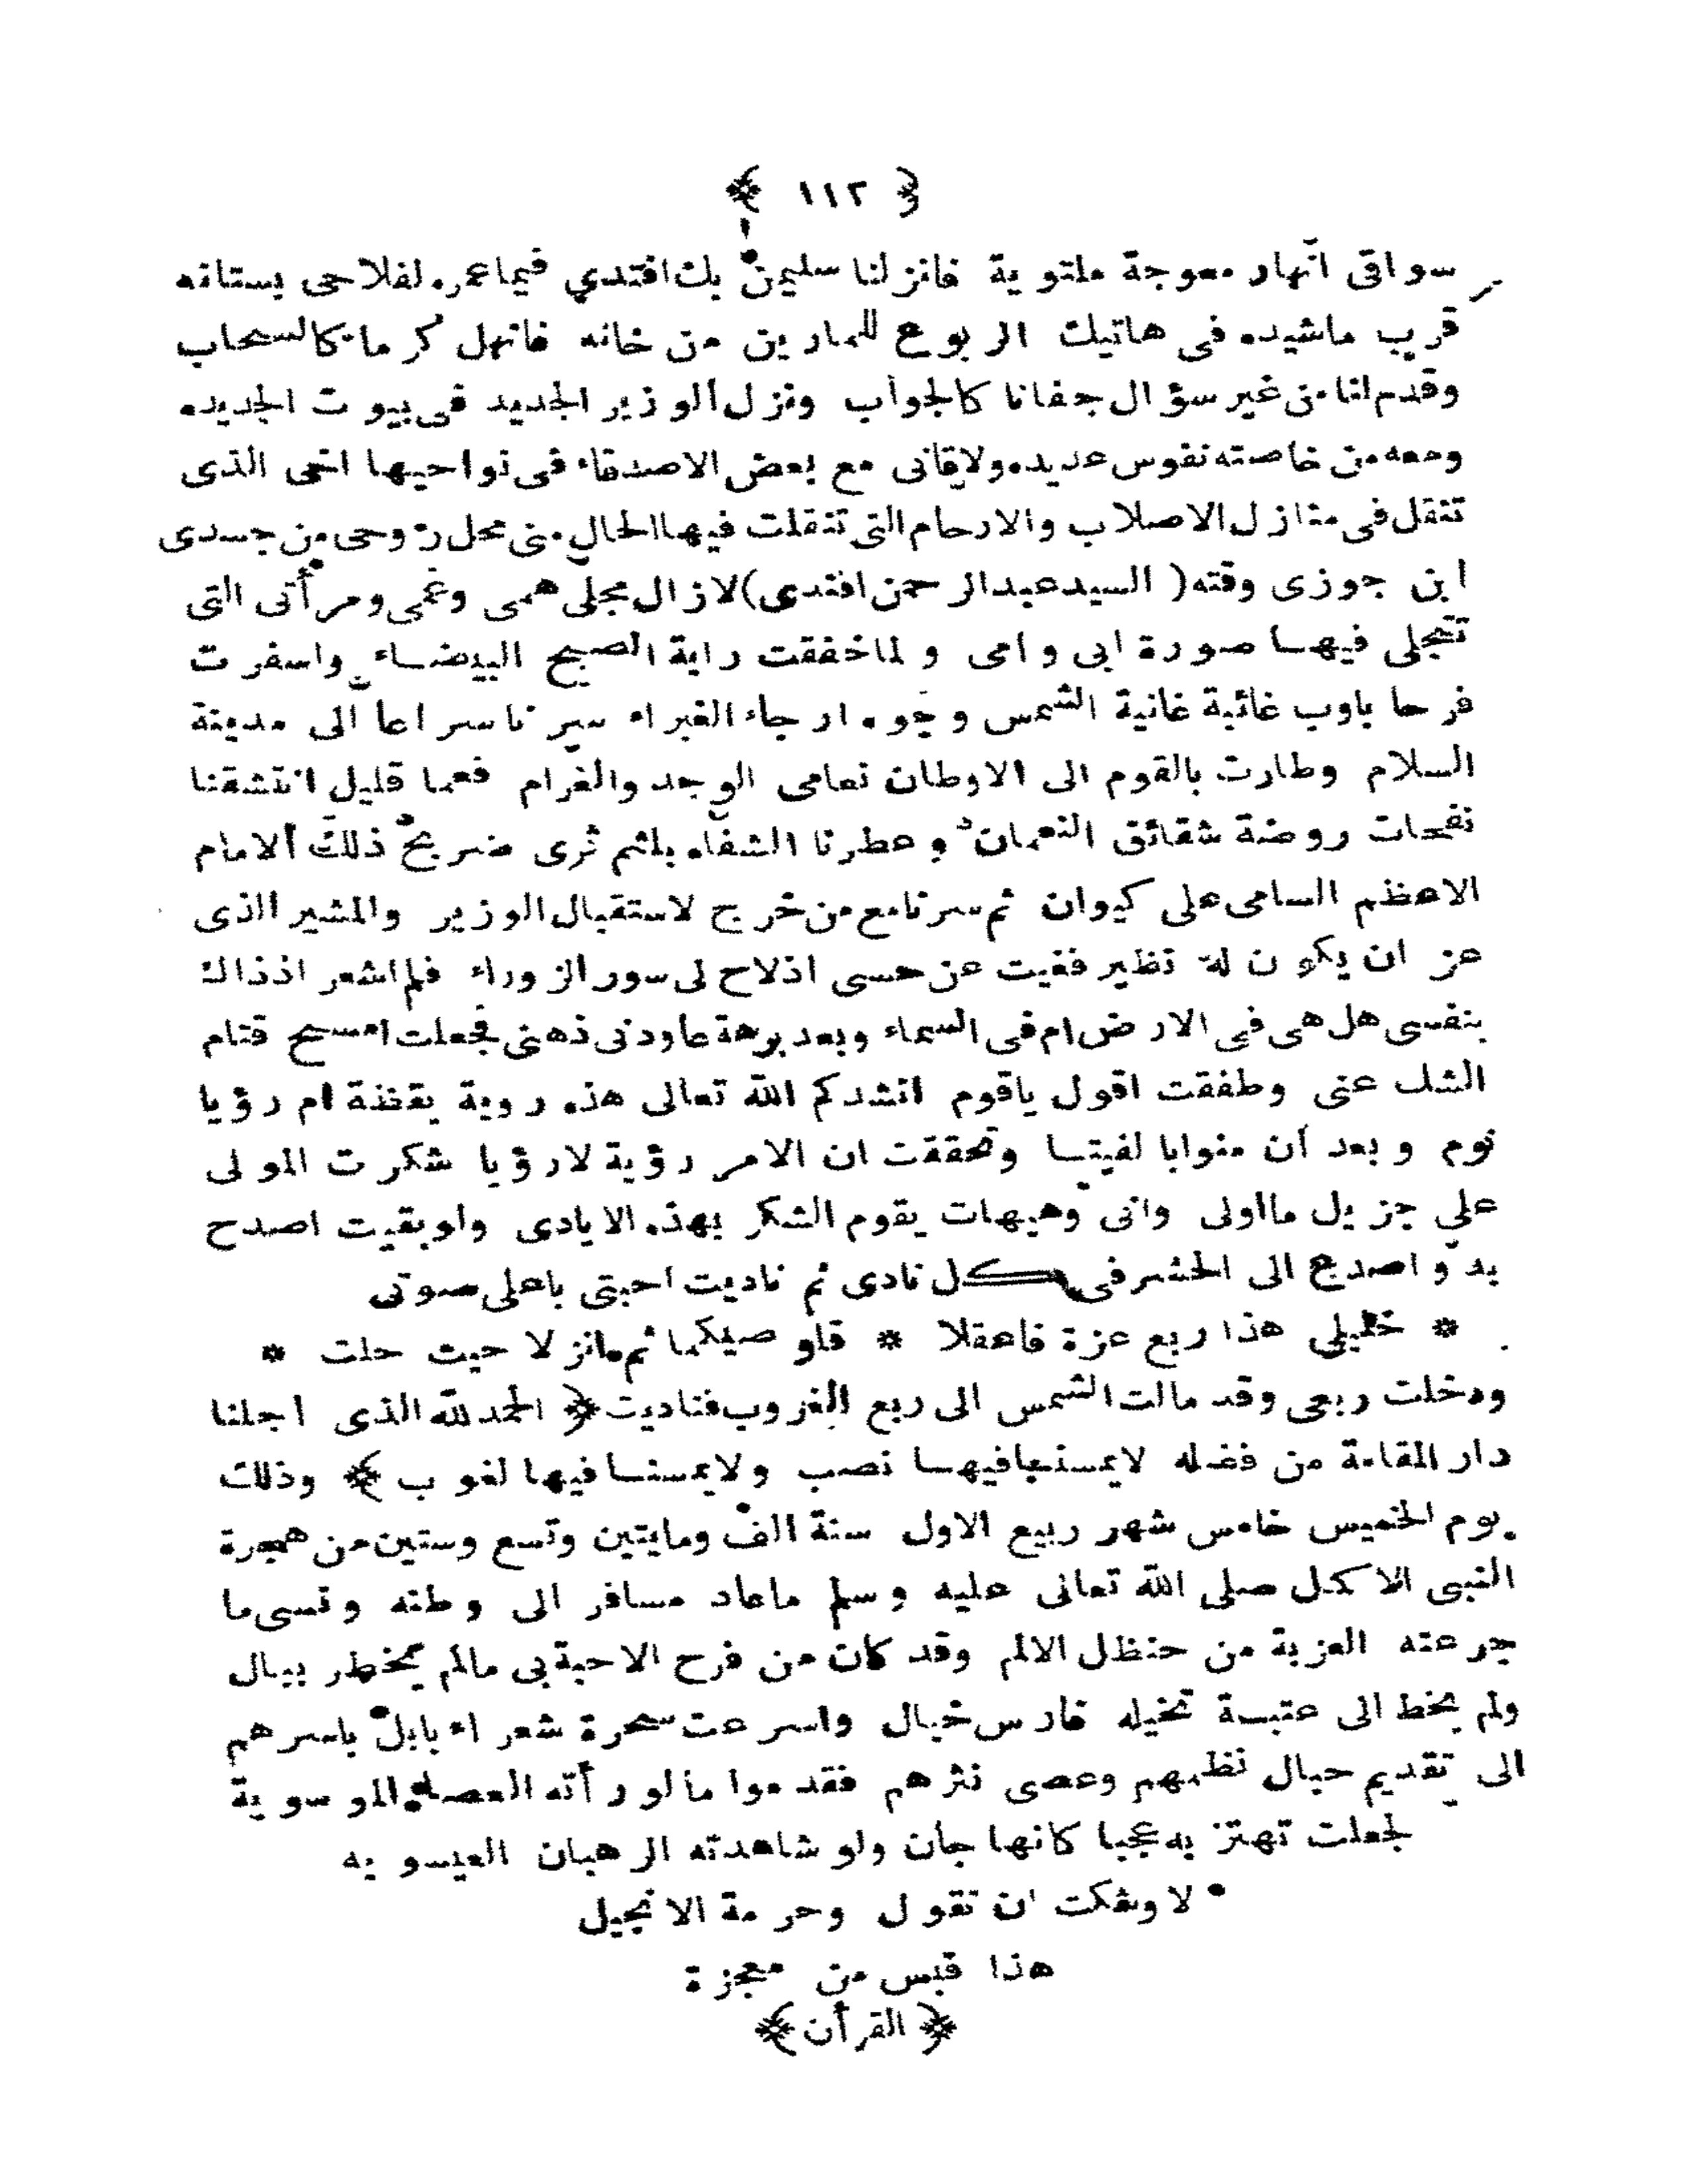 ﴿ ١١٢ ﴾
سواقى انهار معوجة ملتوية فانزلنا سليمن بك افندي فيما عمره لفلاحى بستانه
قرب ماشيده فى هاتيك الربوع للمارين من خانه فانهل كرما كالسحاب
وقدم لنا من غير سؤال جفانا كالجواب ونزل الوزير الجديد فى بيوت الجديده
ومعه من خاصته نفوس عديده ولاقانى مع بعض الاصدقاء فى نواحيها اخى الذى
تنقل فى منازل الاصلاب والارحام التى تنقلت فيها الحال منى محل روحى من جسدى
ابن جوزى وقته ( السيد عبد الرحمن افندى ) لازال مجلى همى وغمى ومرأتى التى
تتجلى فيها صورة ابى وامى ولما خفقت راية الصبح البيضاء واسفرت
فرحا باوب غائبة غانية الشمس وجوه ارجاء الغبراء سيرنا سراعا الى مدينة
السلام وطارت بالقوم الى الاوطان نعامى الوجد والغرام فعما قليل انتشقنا
نفحات روضة شقائق النعمان وعطرنا الشفاه بلثم ثرى ضريح ذلك الامام
الاعظم السامى على كيوان ثم سرنا مع من خرج لاستقبال الوزير والمشير الذى
عز ان يكون له نظير فغيت عن حسى اذلاح لى سور الزوراء فلم اشعر اذذاك
بنفسى هل هى فى الارض ام فى السماء وبعد برهة عاودنى ذهنى فجعلت امسح قتام
الشك عنى وطفقت اقول ياقوم انشدكم الله تعالى هذه روية يقظة ام رؤيا
نوم وبعد ان منوابا لفيتا وتحققت ان الامر رؤية لارؤيا شكرت المولى
على جزيل مااولى وانى وهيهات يقوم الشكر بهذه الايادى ولوبقيت اصدح
به واصدع الى الحشر فى كل نادى ثم ناديت احبتى باعلى صوتى
* خليلى هذا ربع عزة فاعقلا * قلوصيكما ثم مانزلا حيث حلت *
ودخلت ربعى وقد مالت الشمس الى ربع الغروب فناديت ﴿ الحمد لله الذى احلنا
دار المقامة من فضله لايمسنا فيها نصب ولايمسنا فيها لغوب ﴾ وذلك
يوم الخميس خامس شهر ربيع الاول سنة الف ومايتين وتسع وستين من هجرة
النبى الاكمل صلى الله تعالى عليه وسلم ماعاد مسافر الى وطنه ونسى ما
جرعته الغربة من حنظل الالم وقد كان من فرح الاحبة بى مالم يخطر ببال
ولم يخط الى عتبة تخيله فارس خيال واسرعت سحرة شعراء بابل باسرهم
الى تقديم حبال نظمهم وعصى نثرهم فقدموا مالو رأته العصا الموسوية
لجعلت تهتز به عجبا كانها جان ولو شاهدته الرهبان العيسويه
لاوشكت ان تقول وحرمة الانجيل
هذا قبس من معجزة
﴿ القرأن ﴾